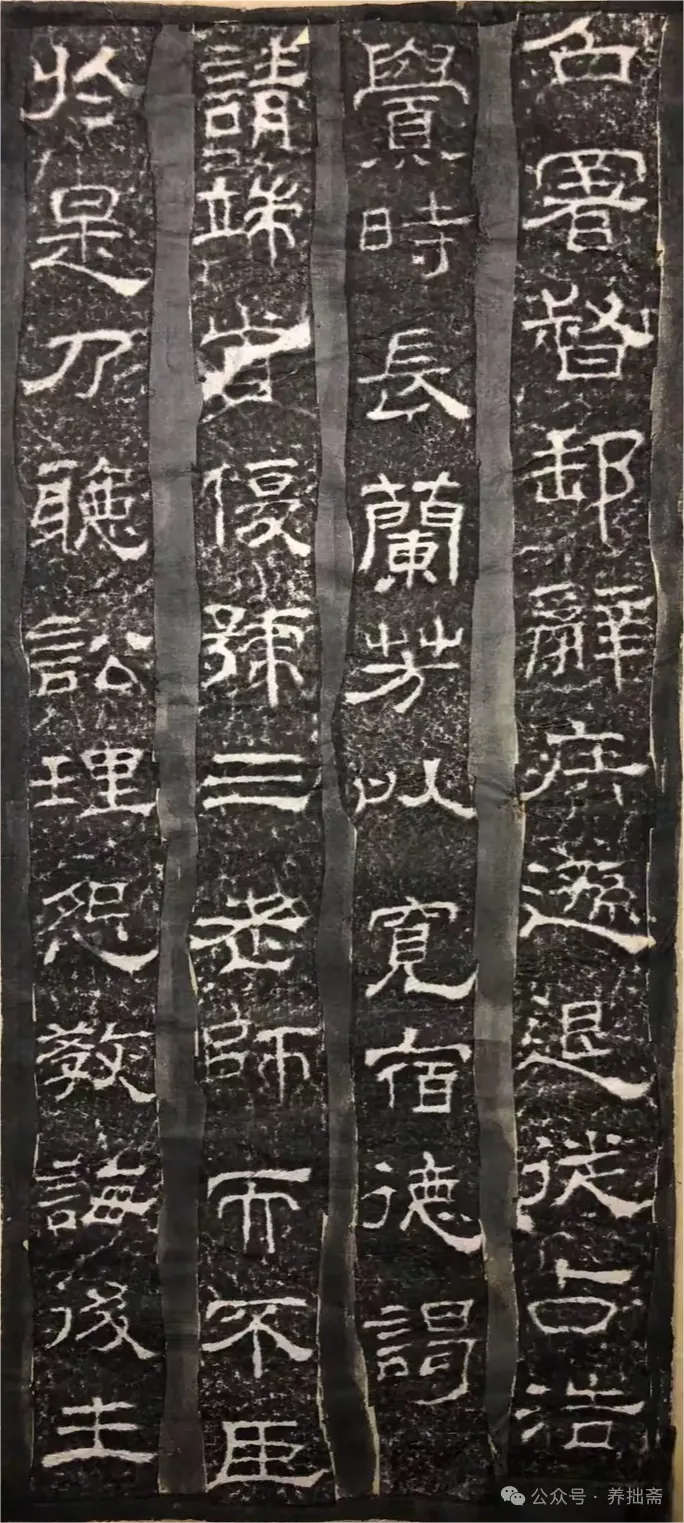 召署督郵辭疾遜退徙占浩
亹時長蘭芳以寬宿德謁
請端首優號三老師而不臣
於是乃聽訟理怨教誨後生
公众号 · 养拙斋